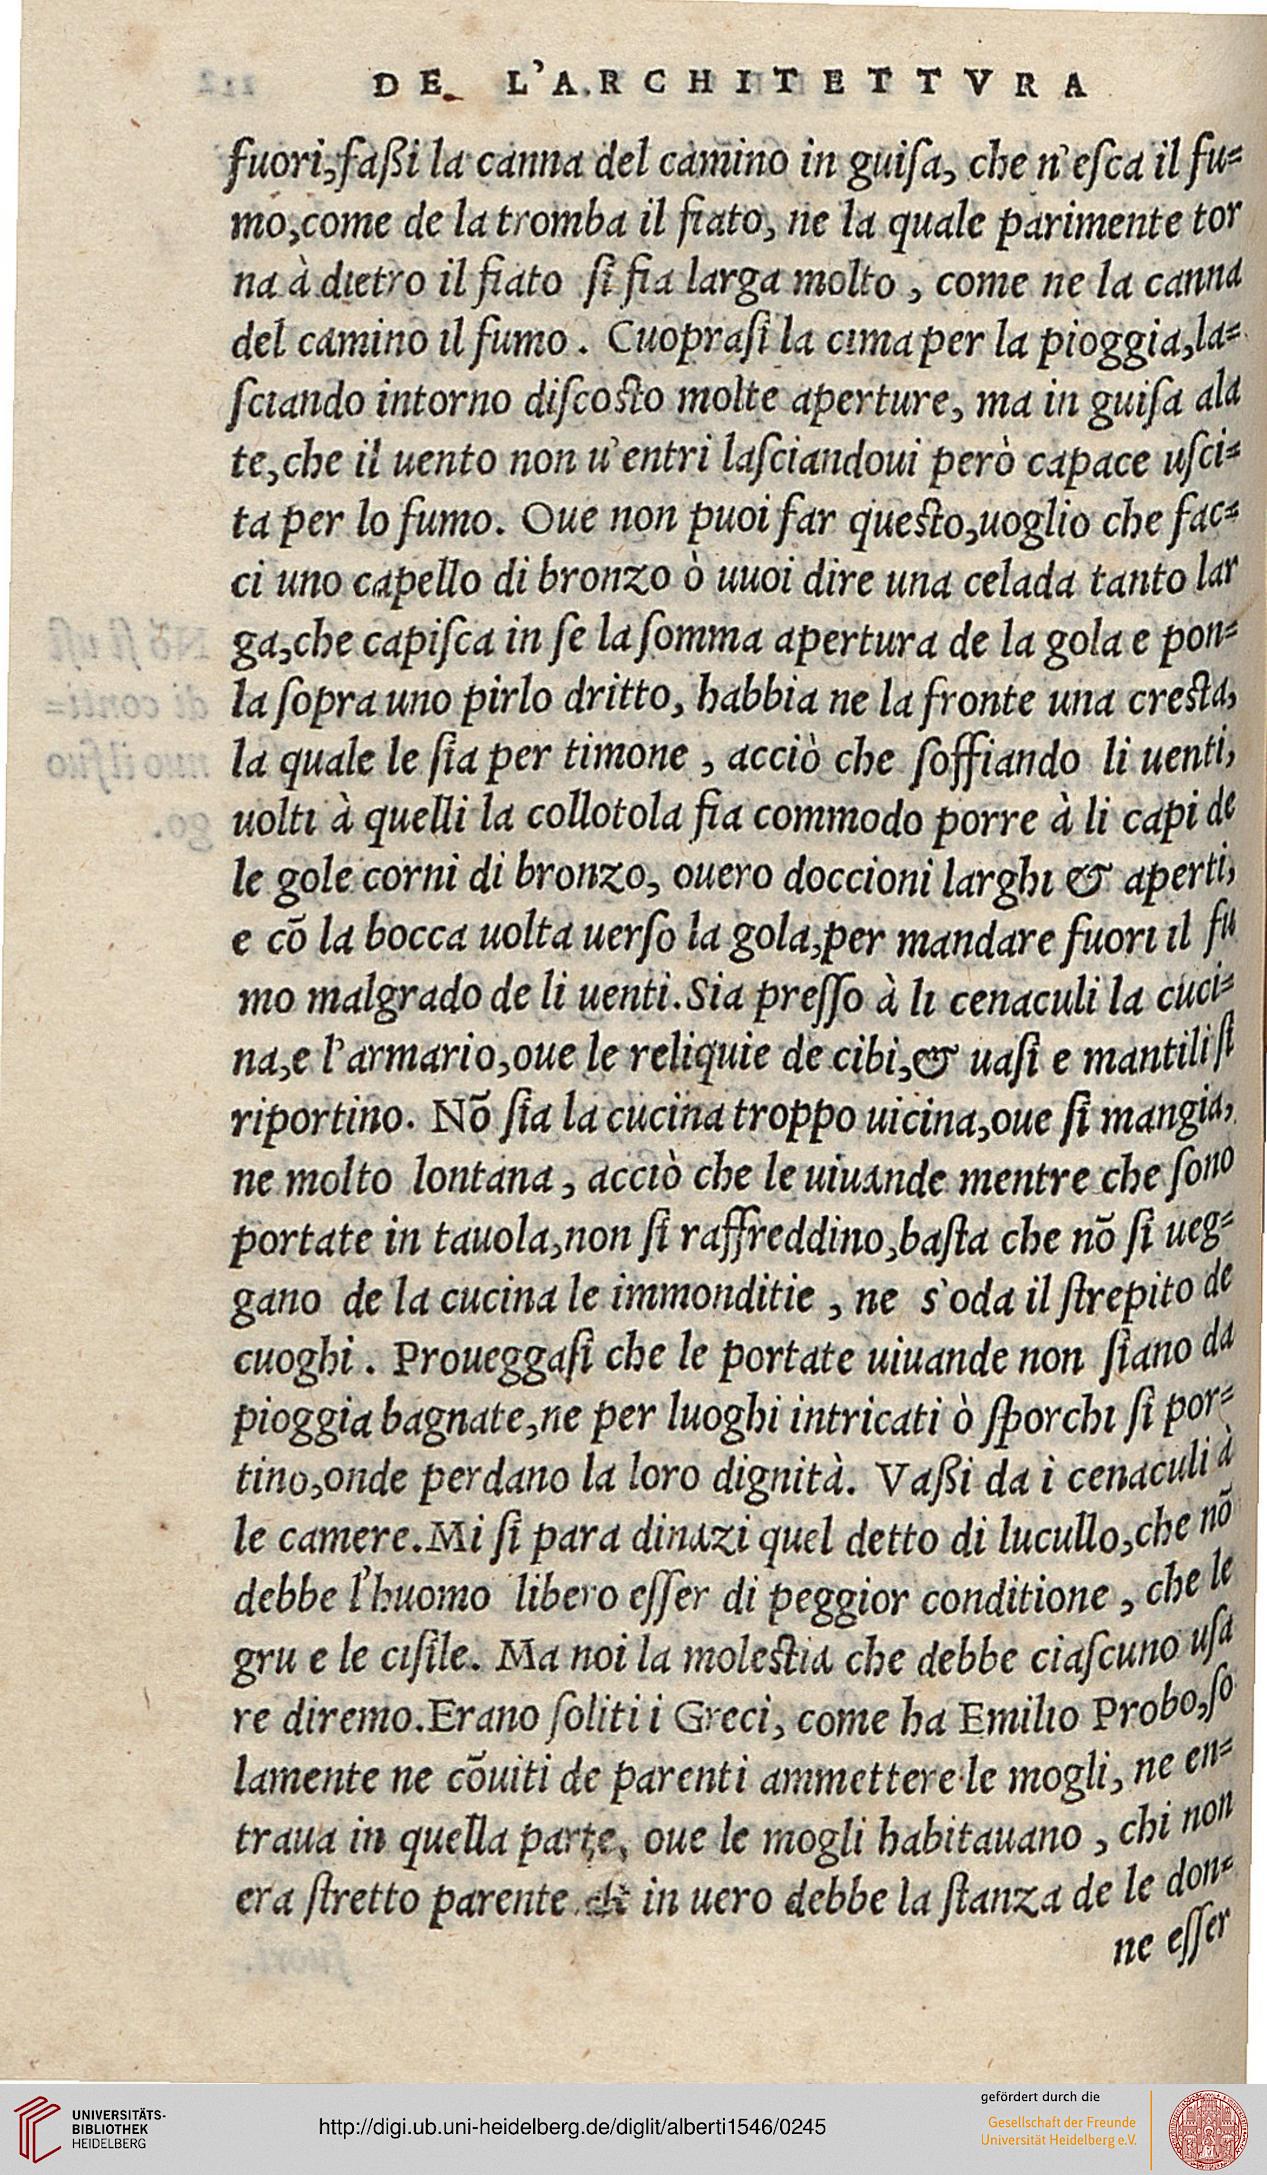 DE L'ARCHITETTVRA
fuori, faßi la canna del camino in guiſa, che n'eſca il fu=
mo, come de la tromba il fiato, ne la quale parimente tor
na à dietro il fiato ſi fia larga molto, come ne la canna
del camino il fumo. Cuopraſi la cima per la pioggia, la=
ſciando intorno diſcoſto molte aperture, ma in guiſa ala
te, che il uento non u'entri laſciandoui però capace uſci=
ta per lo fumo. Oue non puoi far queſto, uoglio che fac=
ci uno capello di bronzo ò uuoi dire una celada tanto lar
ga, che capiſca in ſe la ſomma apertura de la gola e pon=
la ſopra uno pirlo dritto, habbia ne la fronte una creſta,
la quale le ſia per timone, acciò che ſoffiando li uenti,
uolti à quelli la collotola fia commodo porre à li capi de
le gole corni di bronzo, ouero doccioni larghi & aperti,
e cō la bocca uolta uerſo la gola, per mandare fuori il fu
mo malgrado de li uenti. Sia preſſo à li cenaculi la cuci=
na, e l'armario, oue le reliquie de cibi, & uaſi e mantili ſi
riportino. Nō ſia la cucina troppo uicina, oue ſi mangia,
ne molto lontana, acciò che le uiuande mentre che ſono
portate in tauola, non ſi raffreddino, baſta che nō ſi ueg=
gano de la cucina le immonditie, ne s'oda il ſtrepito de
cuoghi. Proueggaſi che le portate uiuande non ſiano da
pioggia bagnate, ne per luoghi intricati ò ſporchi ſi por=
tino, onde perdano la loro dignità. Vaßi da i cenaculi à
le camere. Mi ſi para dinazi quel detto di lucullo, che nō
debbe l'huomo libero eſſer di peggior conditione, che le
gru e le ciſile. Ma noi la moleſtia che debbe ciaſcuno uſa
re diremo. Erano ſoliti i Greci, come ha Emilio Probo, ſo
lamente ne cōuiti de parenti ammettere le mogli, ne en=
traua in quella parte, oue le mogli habitauano, chi non
era ſtretto parente & in uero debbe la ſtanza de le don=
ne eſſer
UNIVERSITÄTS-
BIBLIOTHEK
HEIDELBERG
http://digi.ub.uni-heidelberg.de/diglit/alberti1546/0245
gefördert durch die
Gesellschaft der Freunde
Universität Heidelberg e.V.